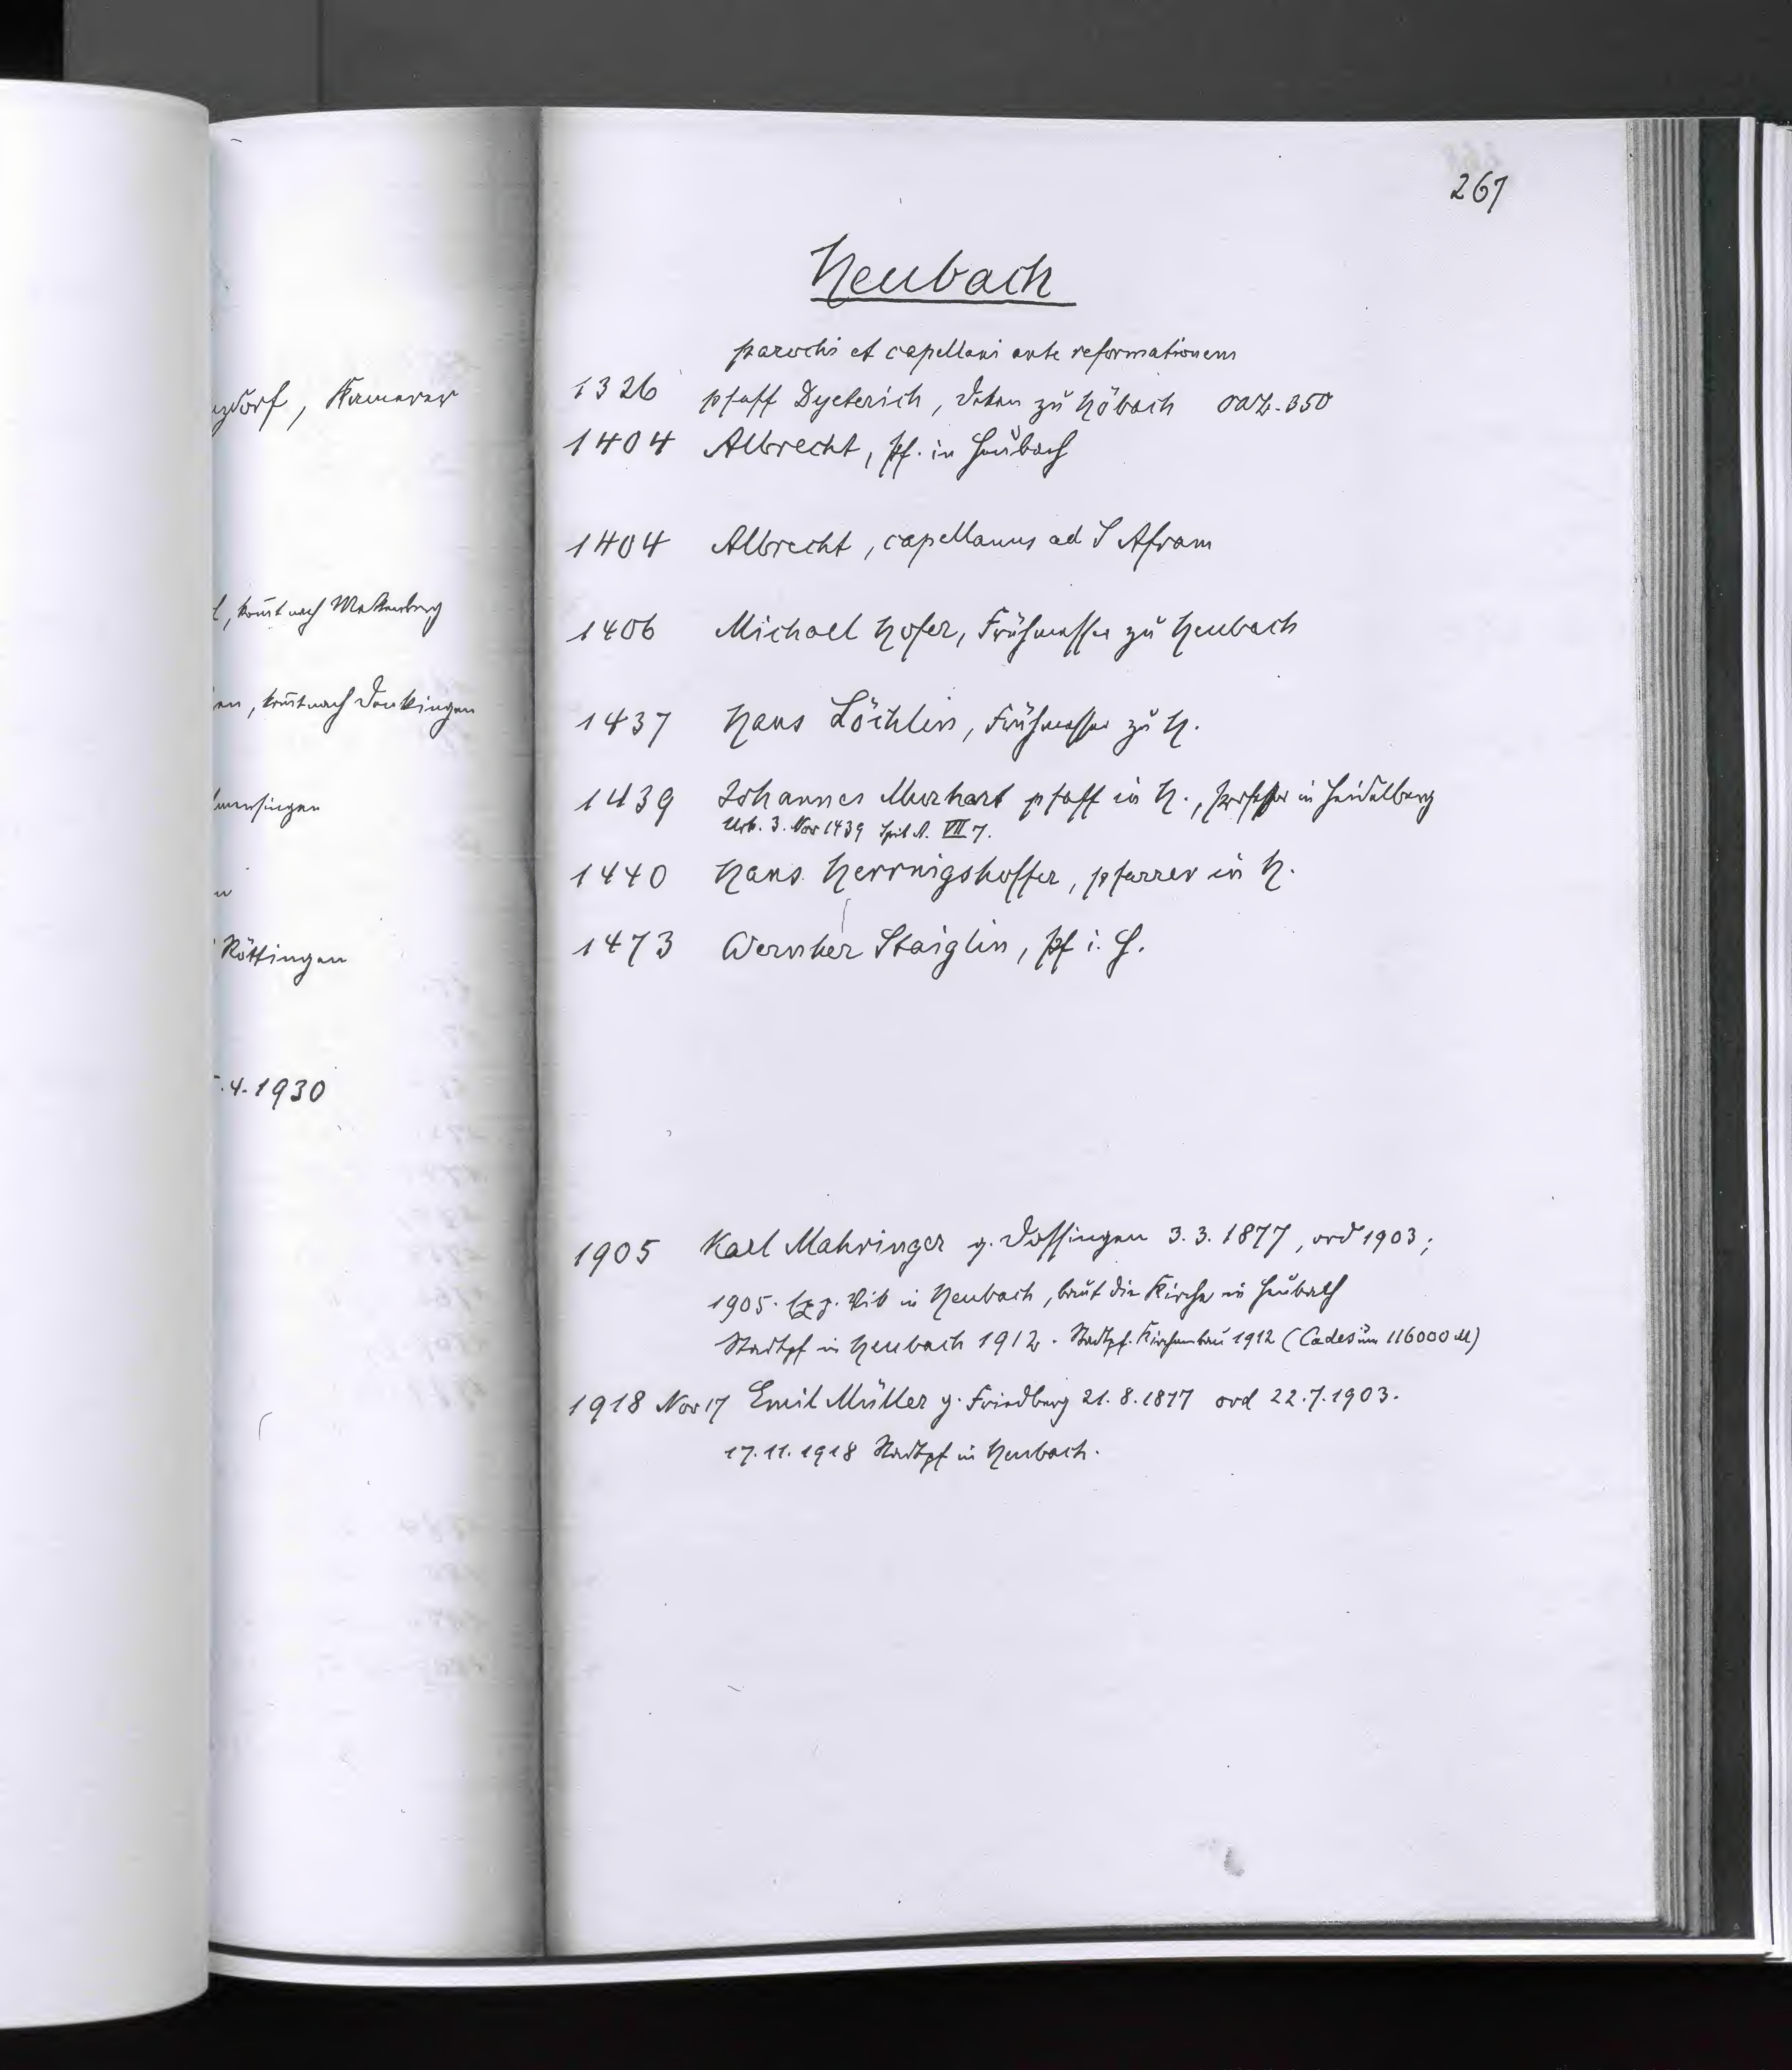 267
Heubach
parochi et capellani ante reformationem
1326 pfaff Dyeterich, Dekan zu Höbach OAB. 350
1404 Albrecht, Pf. in Heubach
1404 Albrecht, capellanus ad S Afram
1406 Michael Hofer, Frühmesser zu Heubach
1437 Hans Löchlin, Frühmesser zu H.
1439 Johannes Murhart pfaff in H., Professor in Heidelberg
Urk. 3. Nov 1439 Spit A. VII 7.
1440 Hans Herrnigshoffer, pfarrer in H.
1473 Wernher Staiglin, Pf i. H.
1905 Karl Mahringer g. Dossingen 3.3.1877, ord 1903;
1905. Exp. Vik in Heubach, baut die Kirche in Heubach
Stadtpf in Heubach 1912. Stadtpf. Kirchenbau 1912 (Cades um 116000 M)
1918 Nov 17 Emil Müller g. Friedberg 21.8.1877 ord 22.7.1903.
17.11.1918 Stadtpf in Heubach.
zdorf, Kamerer
, kommt nach Wettenberg
en, kommt nach Donkingen
mensingen
Röttingen
.4.1930